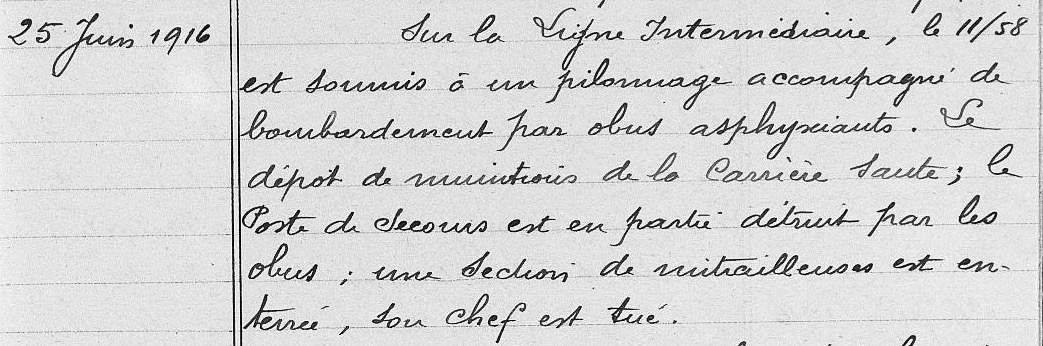 25 Juin 1916 Sur la Ligne Intermédiaire, le 11/58
est soumis à un pilonnage accompagné de
bombardement par obus asphyxiants. Le
dépot de munitions de la Carrière saute ; le
Poste de Secours est en partie détruit par les
obus ; une section de mitrailleuses est en-
terrée, son chef est tué.